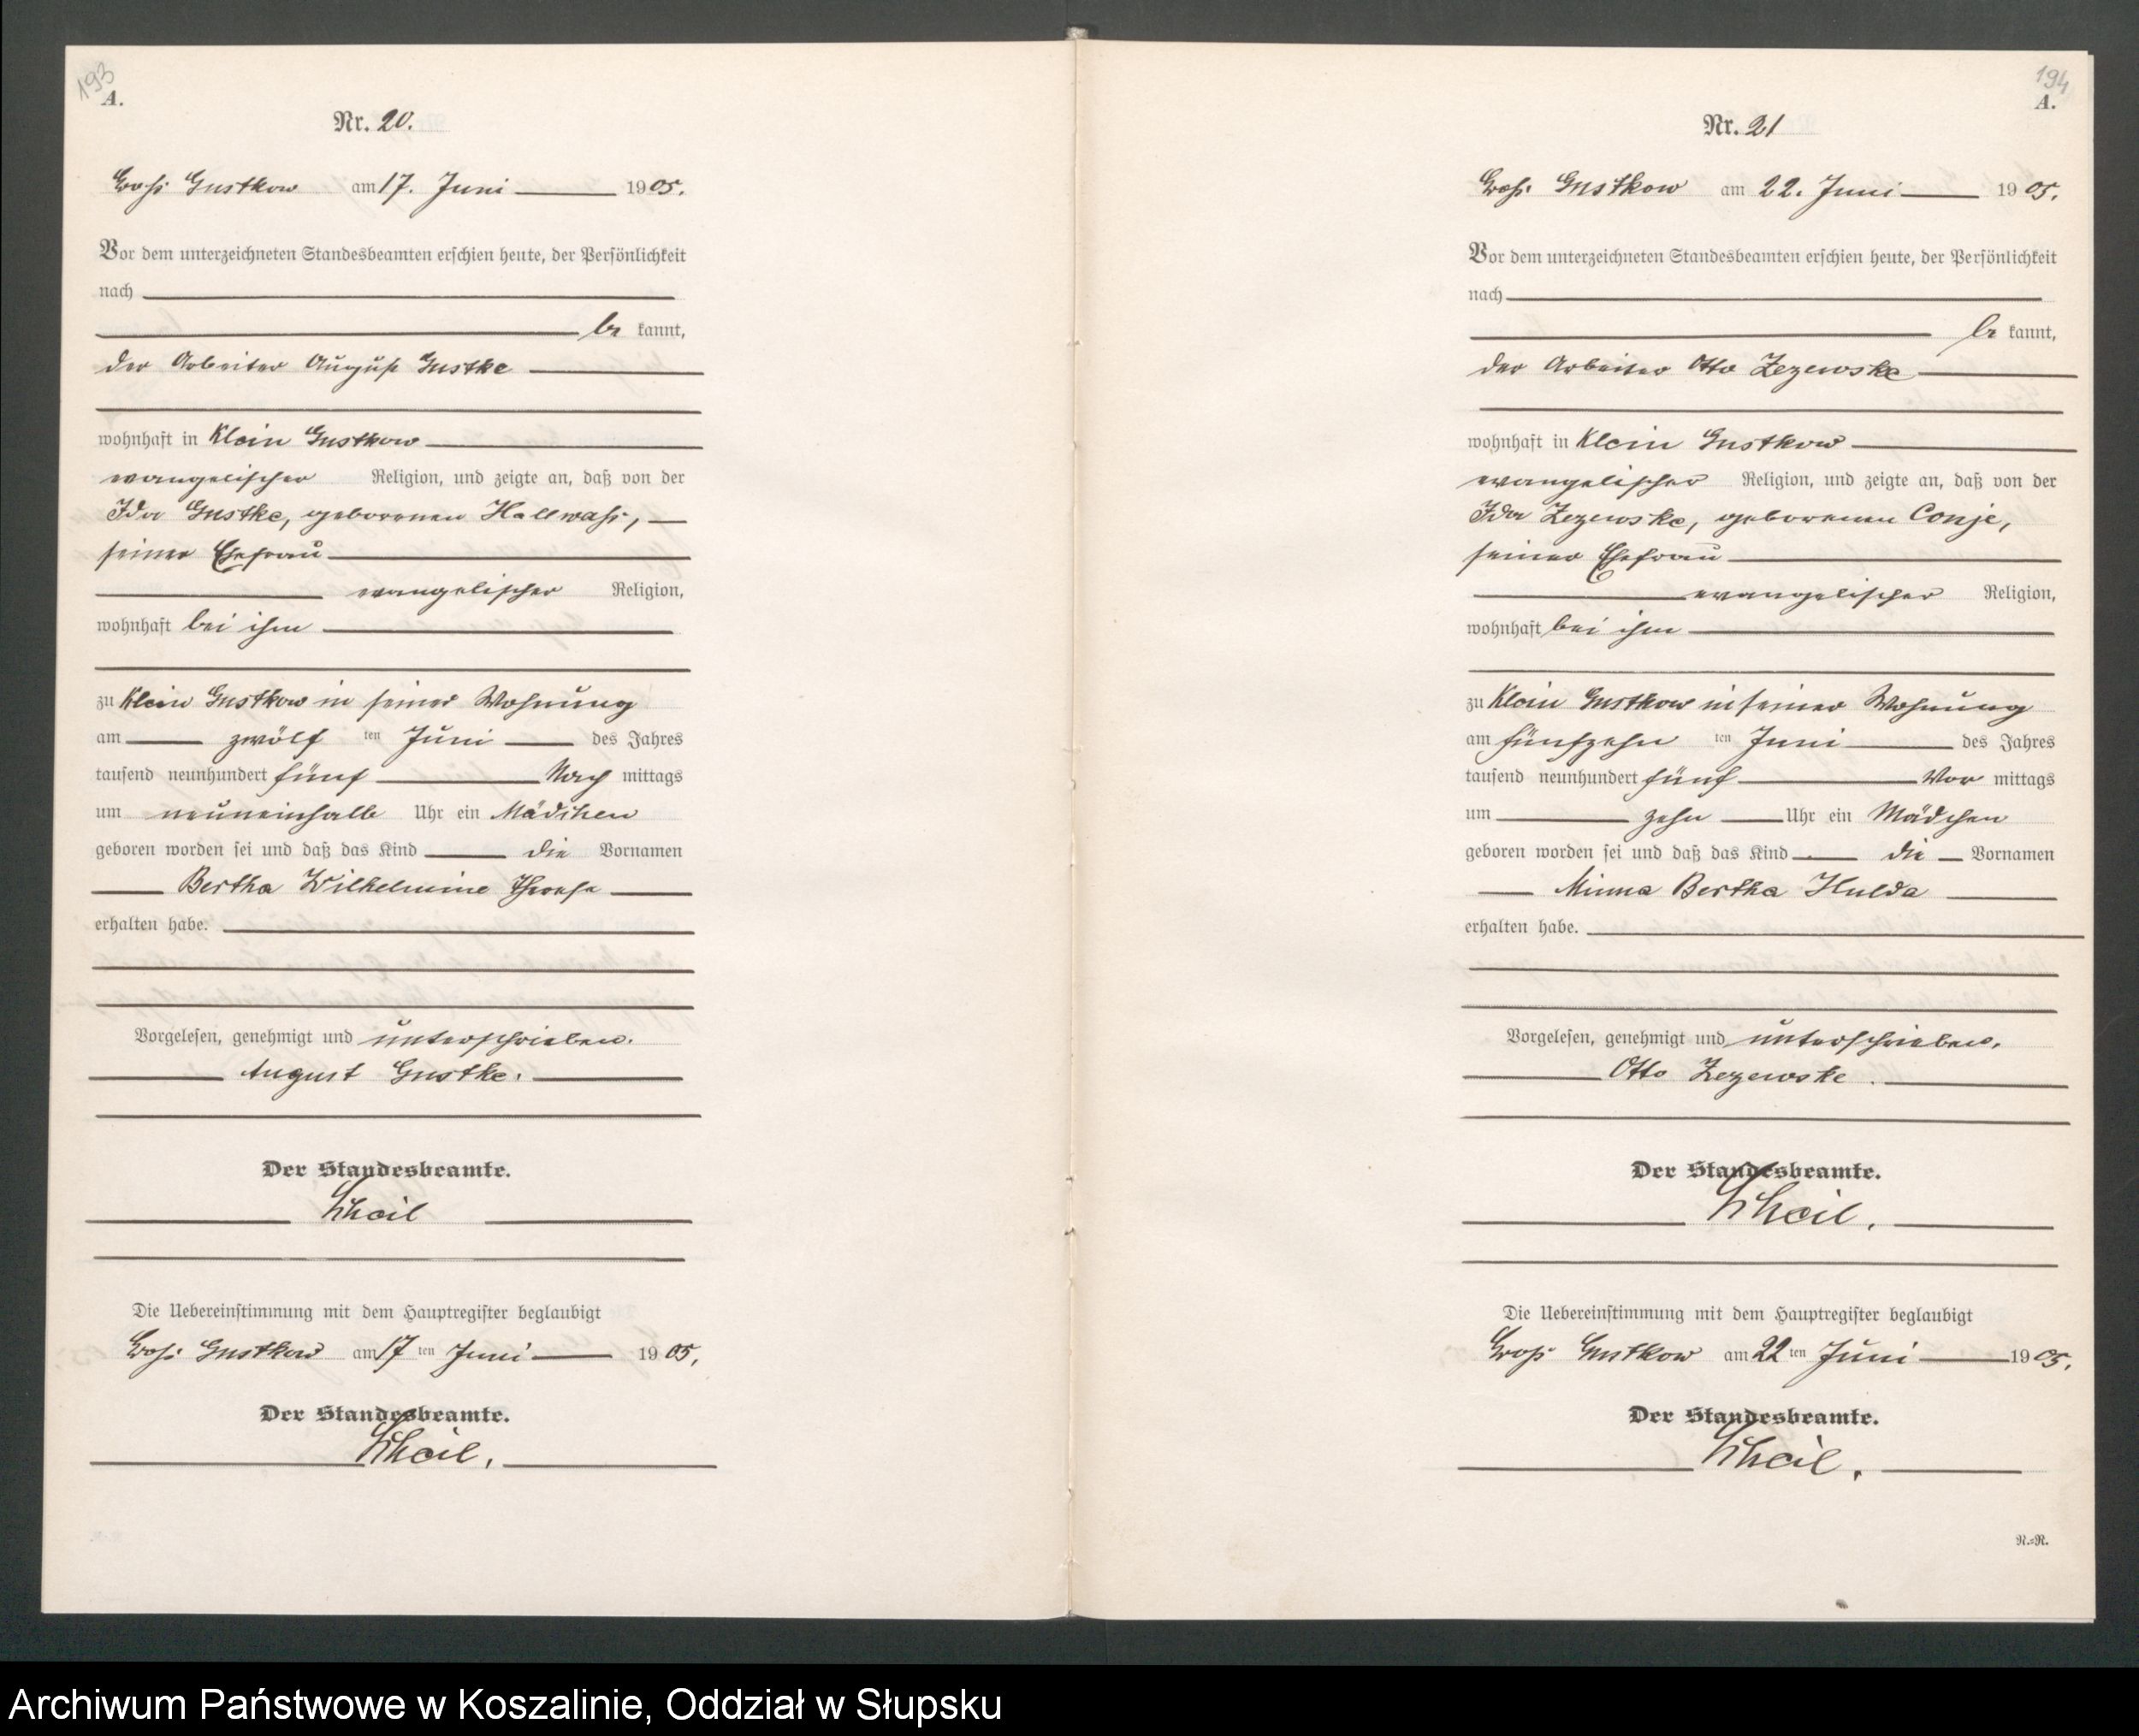 193
A.
Nr. 20.
Groß Gustkow am 17. Juni 1905.
Vor dem unterzeichneten Standesbeamten erschien heute, der Persönlichkeit
nach
be kannt,
der Arbeiter August Gustke
wohnhaft in Klein Gustkow
evangelischer Religion, und zeigte an, daß von der
Ida Gustke, geborenen Hallwaß,
seiner Ehefrau
evangelischer Religion,
wohnhaft bei ihm
zu Klein Gustkow in seiner Wohnung
am zwölf ten Juni des Jahres
tausend neunhundert fünf Nach mittags
um neuneinhalb Uhr ein Mädchen
geboren worden sei und daß das Kind die Vornamen
Bertha Wilhelmine Therese
erhalten habe.
Vorgelesen, genehmigt und unterschrieben.
August Gustke.
Der Standesbeamte.
Scheil
Die Uebereinstimmung mit dem Hauptregister beglaubigt
Groß Gustkow am 17 ten Juni 1905,
Der Standesbeamte.
Scheil.
194
A.
Nr. 21
Groß Gustkow am 22. Juni 1905.
Vor dem unterzeichneten Standesbeamten erschien heute, der Persönlichkeit
nach
be kannt,
der Arbeiter Otto Zezewske
wohnhaft in Klein Gustkow
evangelischer Religion, und zeigte an, daß von der
Ida Zezewske, geborenen Conje,
seiner Ehefrau
evangelischer Religion,
wohnhaft bei ihm
zu Klein Gustkow in seiner Wohnung
am fünfzehn ten Juni des Jahres
tausend neunhundert fünf Vor mittags
um zehn Uhr ein Mädchen
geboren worden sei und daß das Kind die Vornamen
Minna Bertha Hulda
erhalten habe.
Vorgelesen, genehmigt und unterschrieben.
Otto Zezewske.
Der Standesbeamte.
Scheil.
Die Uebereinstimmung mit dem Hauptregister beglaubigt
Groß Gustkow am 22 ten Juni 1905.
Der Standesbeamte.
Scheil.
R.=R.
Archiwum Państwowe w Koszalinie, Oddział w Słupsku